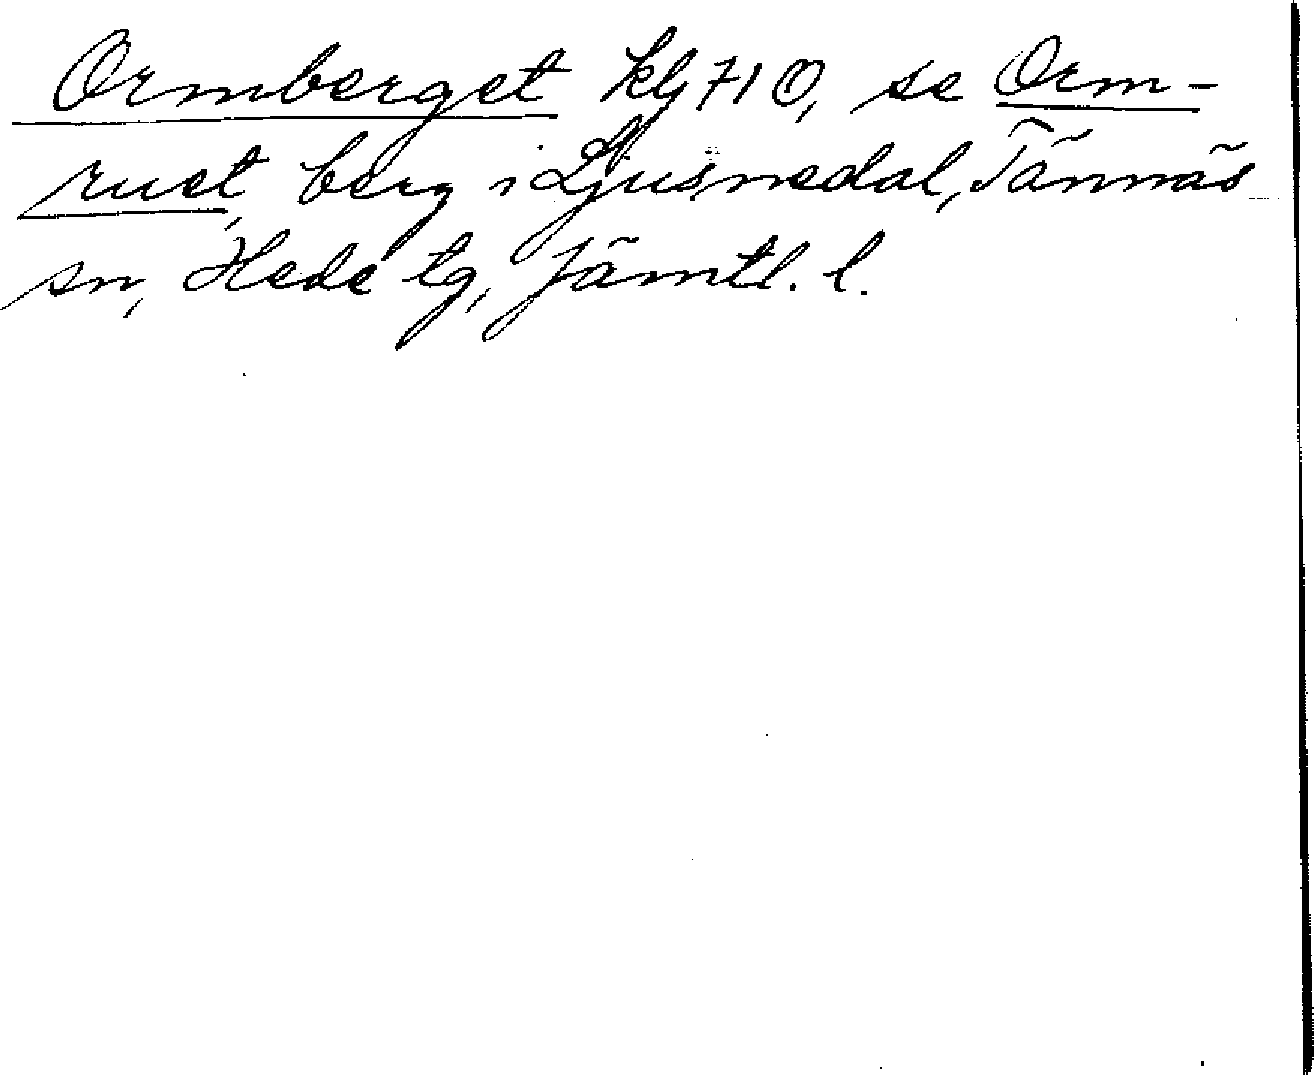 Ormberget kbl 71 O, se Orm-
ruet, berg i Ljusnedal, Tännäs
sn, Hede tg, Jämtl. l.